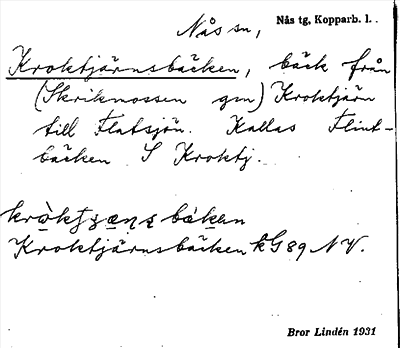 Nås sn, Nås tg, Kopparb. l.
Kroktjärnsbäcken, bäck från
(Skrikmossen gm) Kroktjärn
till Flatsjön. Kallas Flint-
bäcken S Kroktj.
Kroktjärnsbäcken kG 89 NV.
Bror Lindén 1931